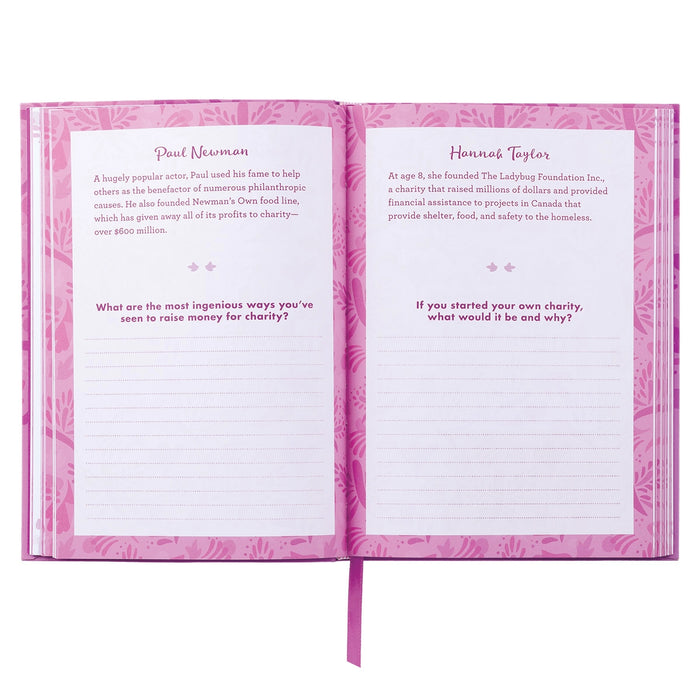 Paul Newman
A hugely popular actor, Paul used his fame to help
others as the benefactor of numerous philanthropic
causes. He also founded Newman's Own food line,
which has given away all of its profits to charity—
over $600 million.
What are the most ingenious ways you've
seen to raise money for charity?
Hannah Taylor
At age 8, she founded The Ladybug Foundation Inc.,
a charity that raised millions of dollars and provided
financial assistance to projects in Canada that
provide shelter, food, and safety to the homeless.
If you started your own charity,
what would it be and why?